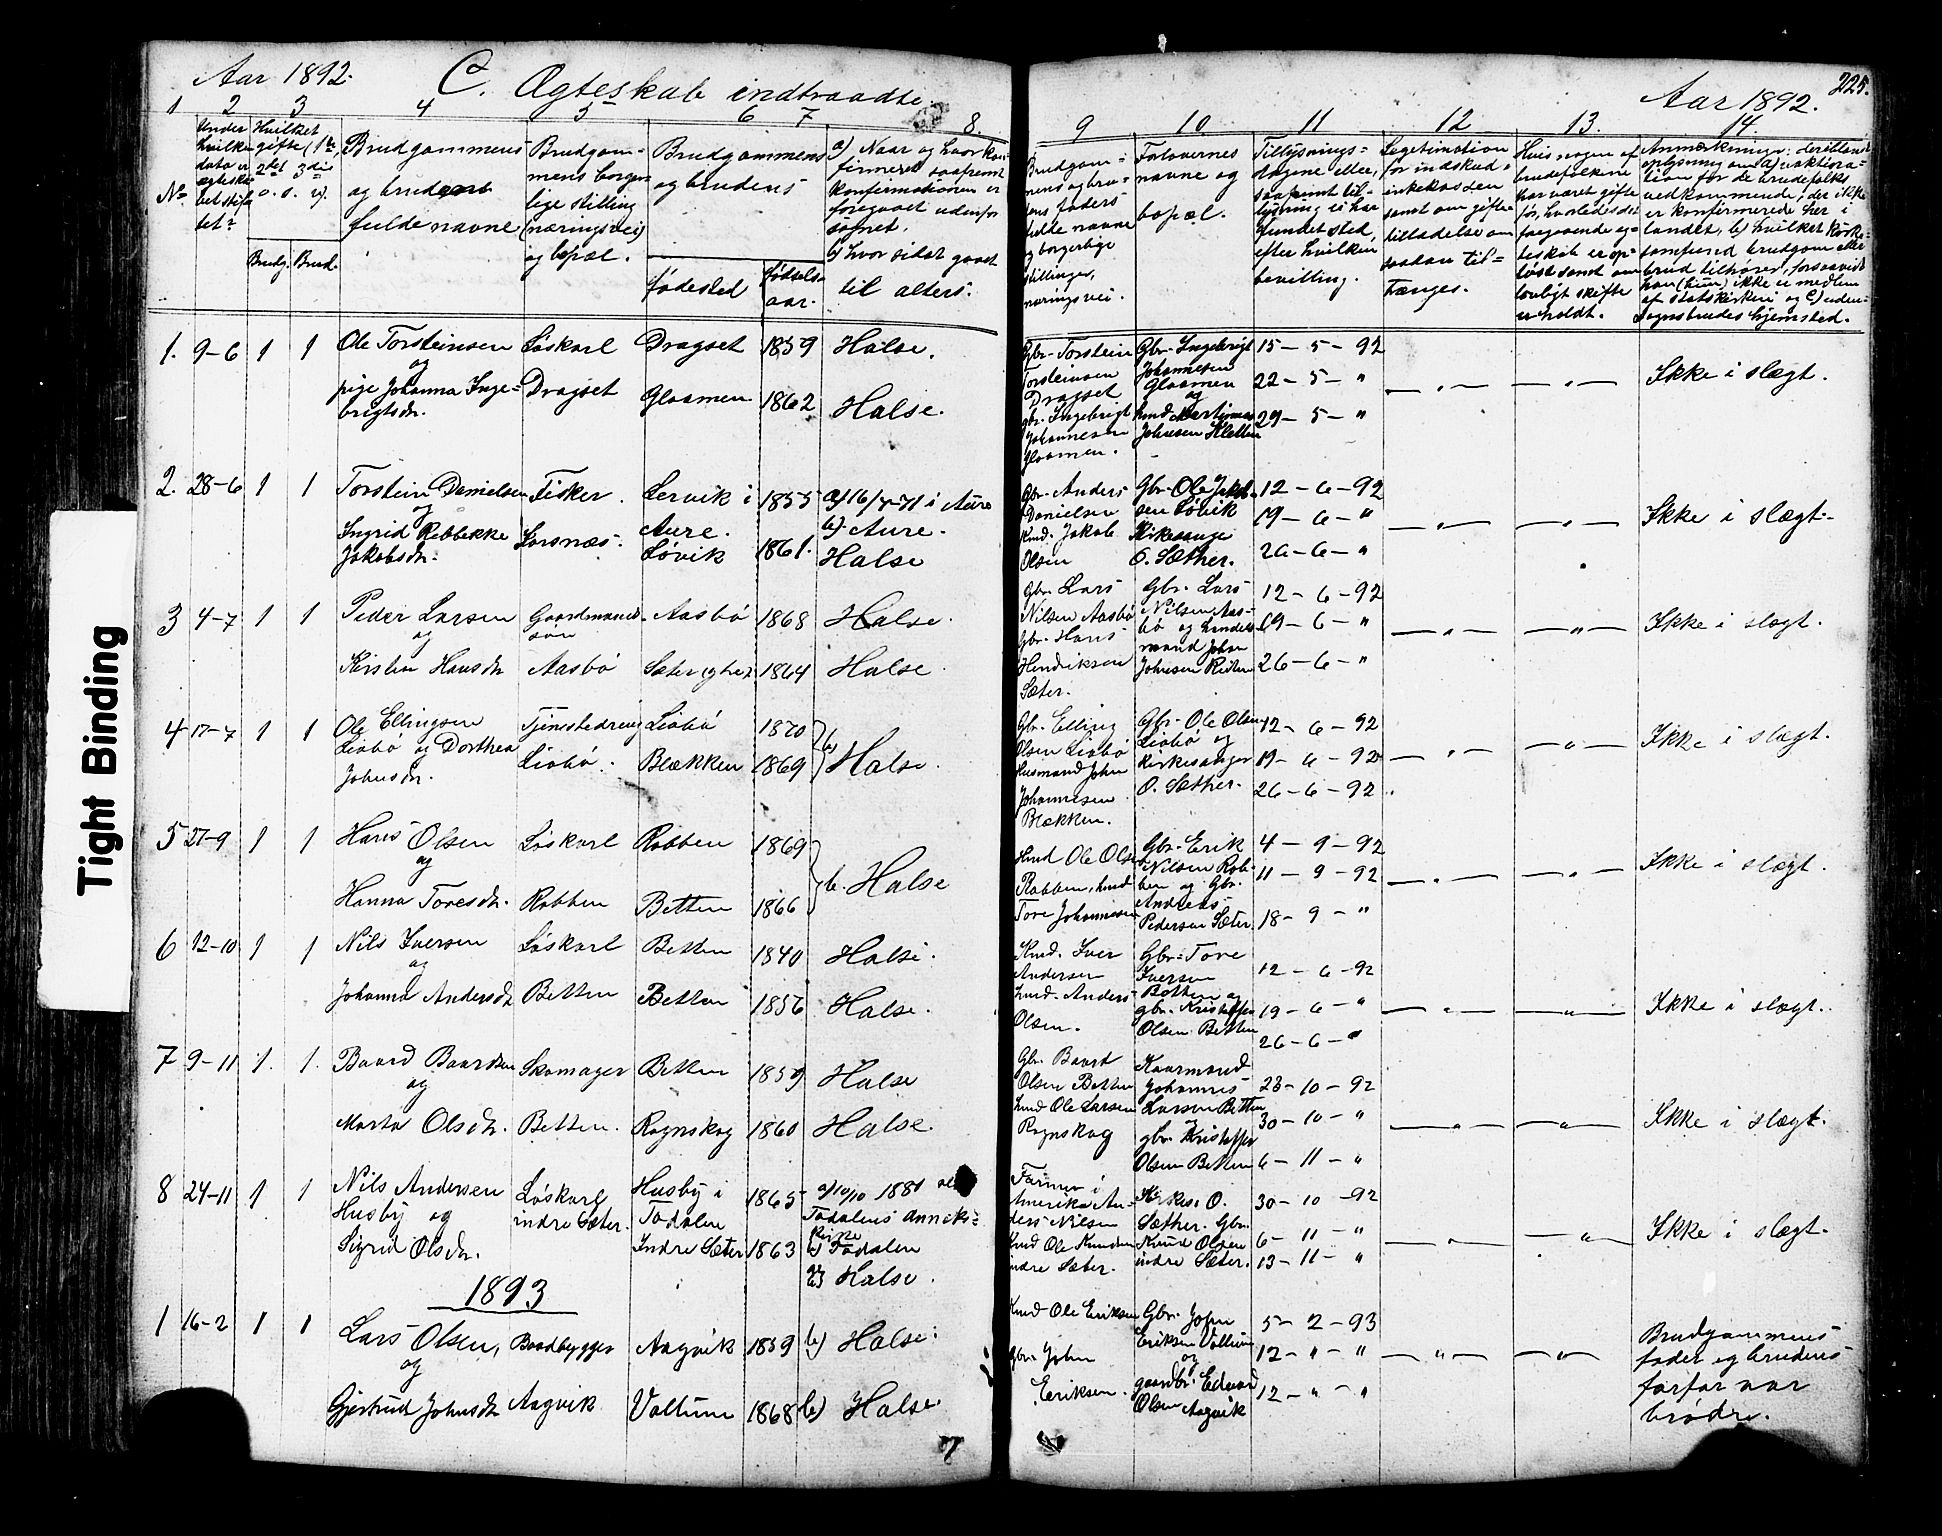 Aar 1892.
C. Ægteskab indtraadte
Aar 1892.
225.
1 2 3 4 5 6 7 8.
9 10 11 12 13. 14.
No
Under
hvilke
dato er
ægteska-
bet stif-
tet
Hvilket
gifte (1te,
2det 3die
o. s. v).
Brudg. Brud.
Brudgommens
og brudens
fulde navne
Brudgom-
mens borger-
lige stilling
(næringsvei)
og bopæl.
Brudgommens
og brudens
fødested
fødsels-
aar.
a) Naar og hvor kon-
firmeret saafremt
konfirmationen er
foregaaet udenfor
sognet.
b) hvor sidst gaaet
til alters.
Brudgom-
mens og bru-
dens faders
fulde navne
og borgerlige
stillinger,
næringsvei.
Forlovernes
navne og
bopæl.
Tillysnings-
dagene eller,
saafremt til-
lysning ei har
fundet sted,
efter hvilken
bevilling.
Legitimation
for indskud i
enkekassen
samt om gifte
tilladelse om
saadan til-
trænges.
Hvis nogen af
brudefolkene
har været gifte
før, hvorledes det
foregaaende æg-
teskab er op-
løst samt om
lovligt skifte
er holdt.
Anmerkninger: deriblandt
oplysning om a) vaktina-
tion for de brudefolks
vedkommende, der ikke
er konfirmerede her i
landet, b) hvilket kirke-
samfund brudgom eller
brud tilhører, forsaavidt
han (hun) ikke er medlem
af statskirken og c) uden-
sognsbrudes hjemsted.
1. 9-6 1 1
Ole Torsteinsen
og
pige Johanna Inge-
brigtsdr.
Løskarl
Dragset
Dragset 1859 Halse.
Gloamen 1862 Halse.
Gbr. Torstein
Torsteinsen
Dragset
gbr. Ingebrigt
Johannesen
Gloamen.
Gbr. Ingebrigt
Johannesen
Gloamen
og
husmd Martinus
Johnsen Kletten
15-5-92
22-5-"
29-5-"
Ikke i slægt.
2. 28-6 1 1
Torstein Danielsen
og
Ingrid Rebbekke
Jakobsdr.
Fisker.
Lersnæs.
Lervik i
Aure. 1855
Løvik 1861.
a) 16/7-71 i Aure
b) Aure.
Halse
Gbr. Anders
Danielsen
Husmd. Jakob
Olsen
Gbr. Ole Jakob-
sen Løvik
Kirkesanger
O. Sæther.
12-6-92
19-6-"
26-6-"
Ikke i slægt.
3 4-7 1 1
Peder Larsen
og
Kirsten Hansdr
Gaardmands
søn
Aasbø
Aasbø 1868 Halse.
Sæter ytre 1864 Halse.
Gbr. Lars
Nilsen Aasbø
Gbr. Hans
Henriksen
Sæter.
Gbr. Lars
Nilsen Aas-
bø og Lends-
mand Johan
Johnsen
12-6-92
19-6-"
26-6-"
Ikke i slægt.
4 17-7 1 1
Ole Ellingsen
Liabø og Dorthea
Johnsdr.
Tjenestedreng
Liabø.
Liabø 1870
Blækken 1869
b) Halse.
Gbr. Elling
Olsen Liabø
Husmand John
Johannesen
Blækken.
Gbr. Ole Olsen
Liabø og
kirkesanger
O. Sæther.
12-6-92
19-6-92
26-6-92
Ikke i slægt.
5 27-9 1 1
Hans Olsen
og
Hanna Toresdr.
Løskarl
Robben
Robben 1869
Betten 1866
b. Halse
Husmd Ole Olsen
Robben, husmd
Tore Johannesen
Gbr. Erik
Nilsen Rob-
ben og Gbr.
Andreas
Pedersen Sæter.
4-9-92
11-9-92
18-9-"
Ikke i slægt.
6 12-10 1 1
Nils Iversen
og
Johanna Andersdr
Løskarl
Betten
Betten 1840 Halse.
Betten 1856 Halse.
Husmd. Iver
Andersen
husmd. Anders
Olsen.
Gbr. Tore
Iversen
Betten og
gbr. Kristoffer
Olsen Betten
12-6-92
19-6-"
26-6-"
Ikke i slægt.
7 9-11 1. 1.
Baard Baardsen
og
Marta Olsdr.
Skomager
Betten.
Betten 1859 Halse
Rognskog 1860 Halse.
Gbr. Baard
Olsen Betten
husmd Ole Larsen
Rognskog
Kaarmand
Johannes
Larsen Betten
og
gbr. Kristoffer
Olsen Betten
23-10-92
30-10-"
6-11-"
Ikke i slægt.
8 24-11 1 1
Nils Andersen
Husby og
Sigrid Olsdr.
Løskarl
indre Sæter.
Husby i
Todalen 1865
Indre Sæter 1863
a) 10/10 1881
Todalens anneks-
kirke
b) Todalen
b) Halse.
Farmer i
Amerika An-
ders Nilsen
Husmd Ole Knudsen
indre Sæter.
Kirkes. O.
Sæther. Gbr.
Knud Olsen
indre Sæter.
30-10-92
6-11-"
13-11-"
Ikke i slægt.
1893
1 16-2 1 1
Lars Olsen,
og
Gjertrud Johnsdr
Baadbygger
Aagvik
Aagvik 1859 b) Halse.
Valtum 1868 b) Halse.
Husmd Ole Eriksen
gbr. John
Eriksen.
Gbr. John
Eriksen Valtum
og
gaardbr. Edvard
Olsen Aagvik
5-2-93
12-"-"
12-"-"
Brudgommens
fader og brudens
farfar var
brødre.
Tight Binding